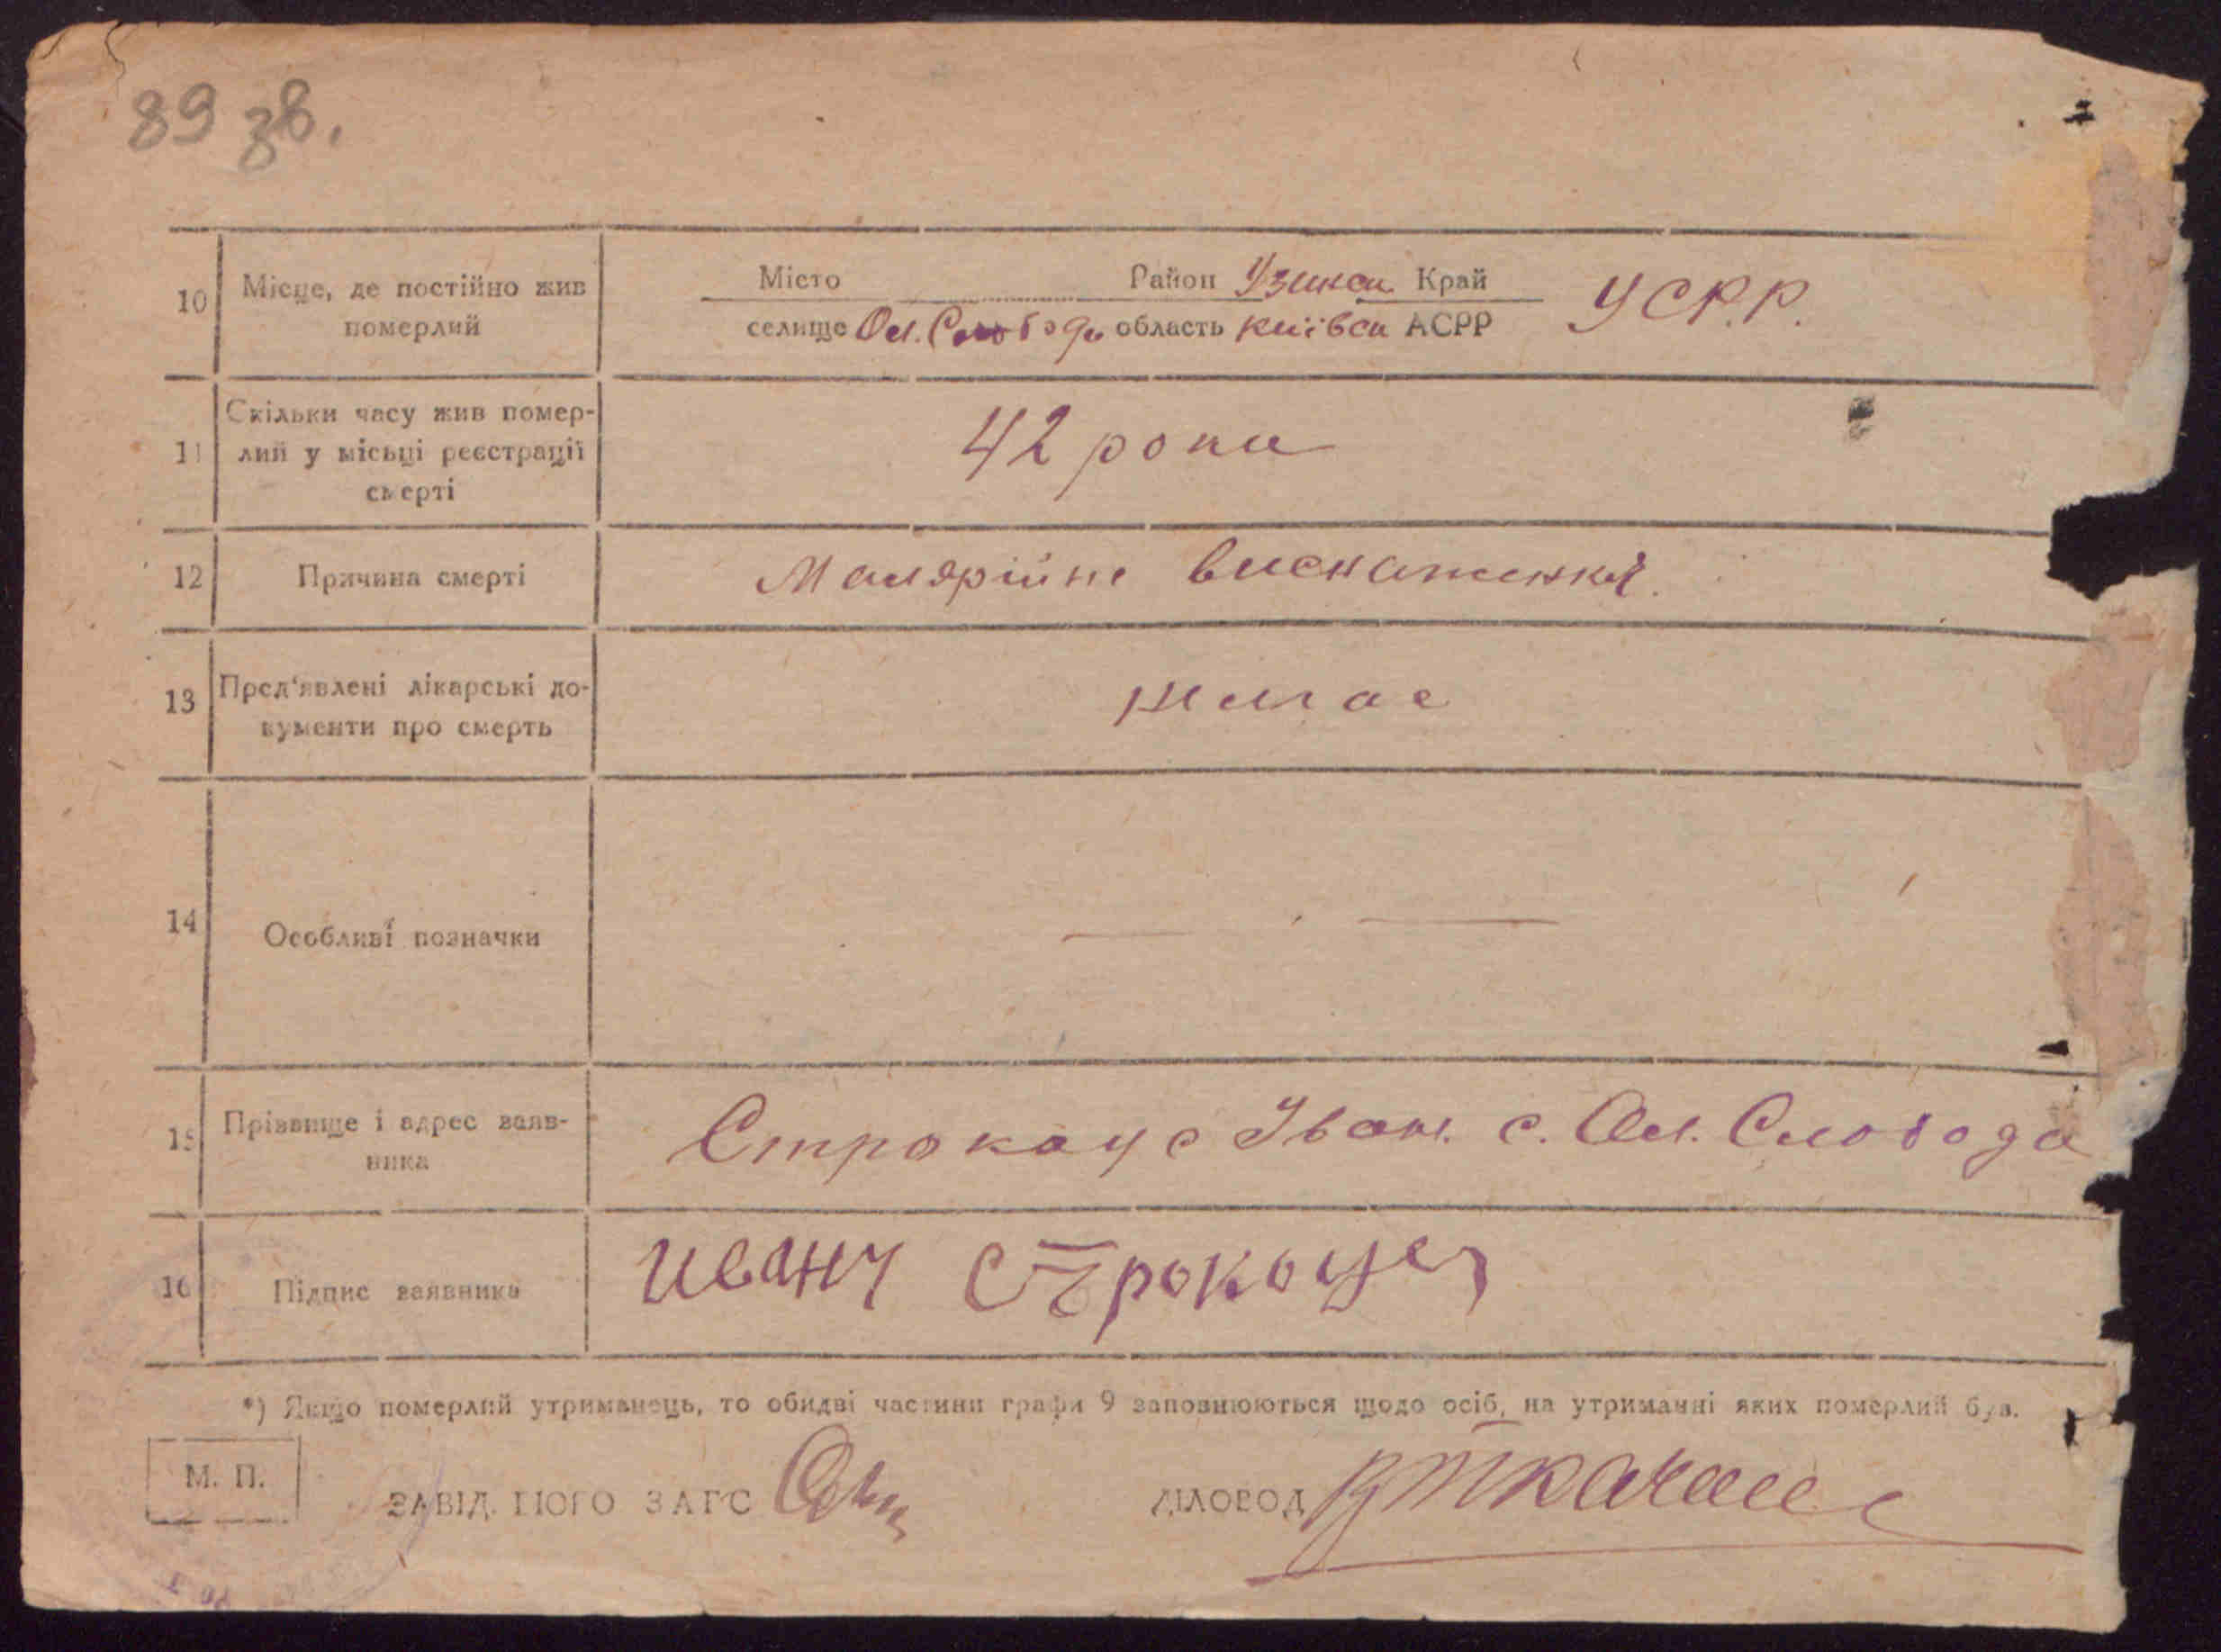 89 зв.
10 Місце, де постійно жив померлий
Місто Район Узинськ Край УСР.Р.
селище Ол. Слобода область Київськ АСРР
11 Скільки часу жив помер-
лий у місьці реєстрації
смерті
42 роки
12 Причина смерті Малярійне виснаження.
13 Пред'явлені лікарські до-
кументи про смерть
немає
14 Особливі позначки — —
15 Прізвище і адрес заяв-
ника
Строкоус Іван. с. Ол. Слобода
16 Підпис заявника Ивану
*) Якщо померлий утриманець, то обидві частини графи 9 заповнюються щодо осіб, на утриманні яких померлий був.
М. П.
ЗАВІД. ЦЮГО ЗАГС
ДІЛОВОД